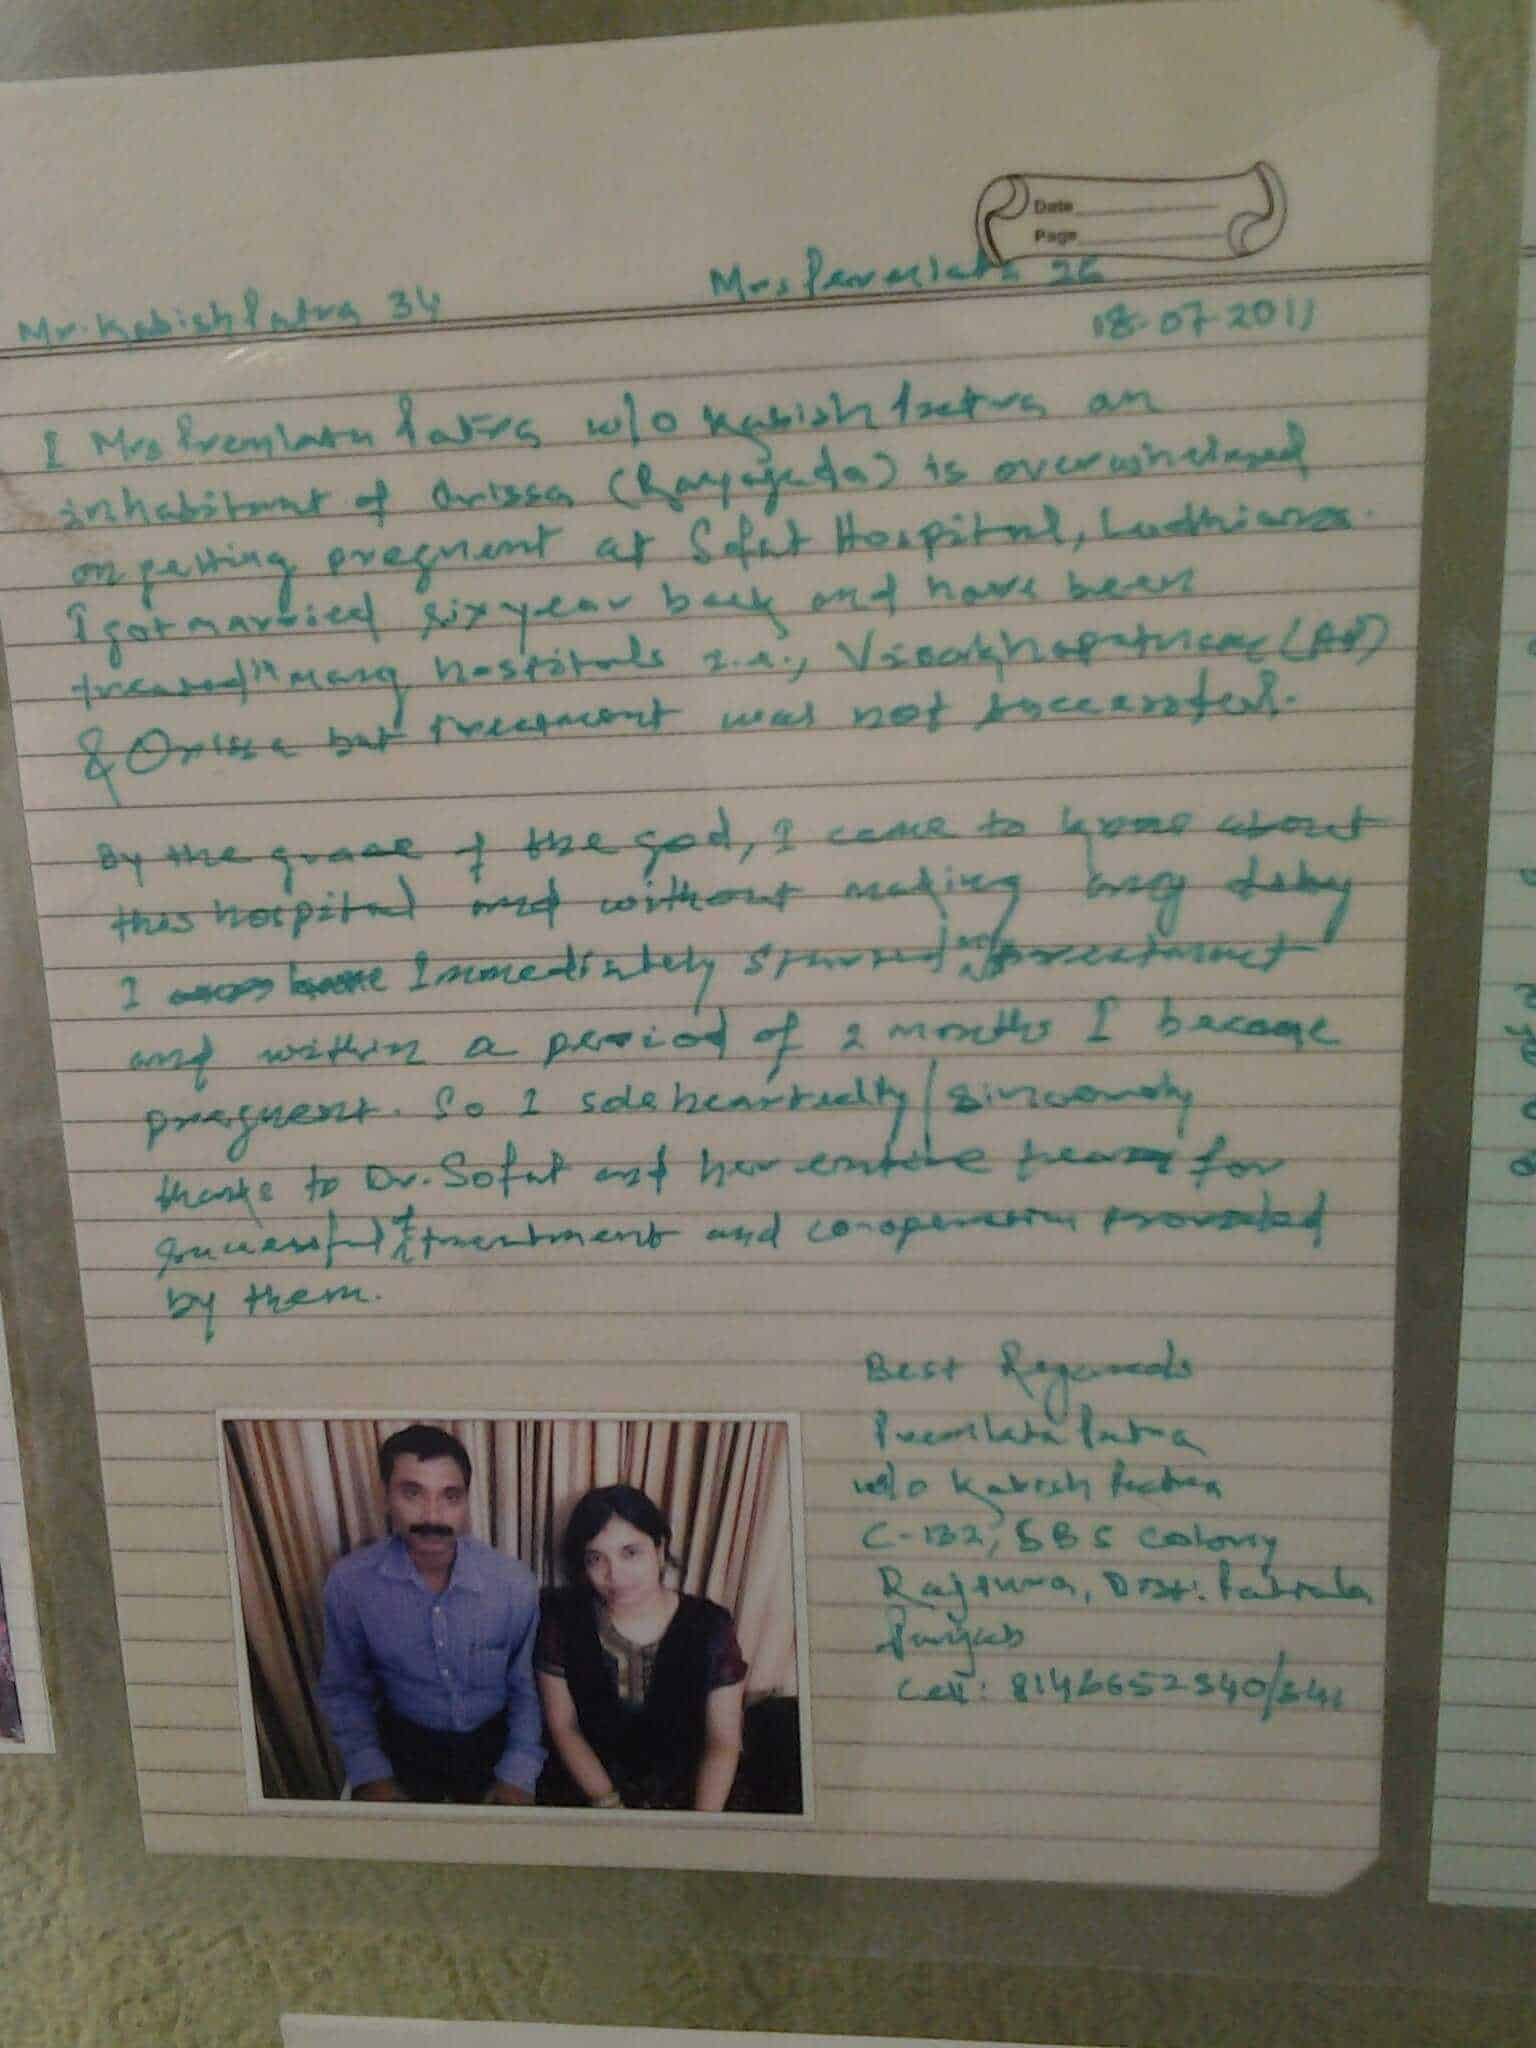 Date
Page
Mr. Kabish Patra 34 Mrs Premlata 26
18-07-2011
I Mrs Premlata Patra w/o Kabish Patra an
inhabitant of Orissa (Rayagada) is overwhelmed
on getting pregnent at Sofat Hospital, Ludhiana.
I got married six year back and have been
treated in many hospitals i.e., Visakhapatnam (AP)
& Orissa but treatment was not successful.
By the grace of the god, I came to know about
this hospital and without making any delay
I immediately started my treatment
and within a period of 2 months I became
pregnent. So I soleheartedly / sincerely
thanks to Dr. Sofat and her entire team for
successful treatment and co-operation provided
by them.
Best Regards
Premlata Patra
w/o Kabish Patra
C-132, SBS Colony
Rajpura, Distt. Patiala
Punjab
Cell: 8146652540/541